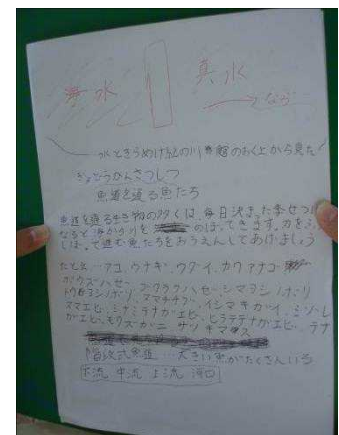 海水 真水
水ときらめけ紀の川館のおく上から見た
ぎょどうかんさつしつ
魚道を通る魚たち
魚道を通る生き物の多くは、毎日決まった
なると海から川を のぼってきます。力をふり
しぼって進む魚たちをおうえんしてあげましょう
たとえば…アユ、ウナギ、ウグイ、カワアナゴ
ボウズハゼ シマヨシノボリ
トウヨシノボリ、スマチチブ、イシマキガイ
ヌマエビ、ミナミテナガエビ、ヒラテテナガエビ、テナ
ガエビ、モクズガニ
階段式魚道 … 大きい魚がたくさんいる
下流 中流 上流 河口